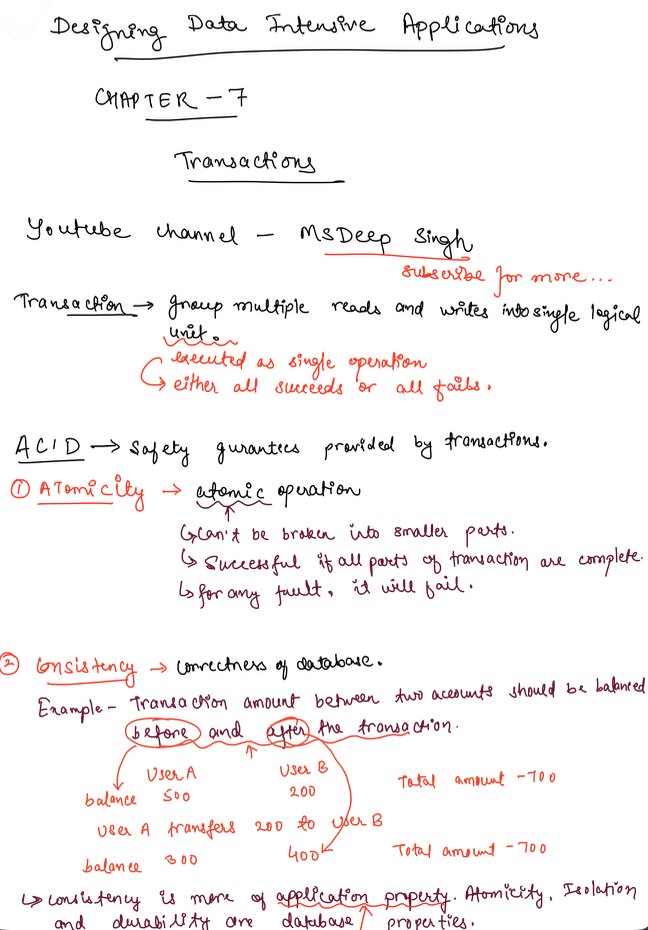 Designing Data Intensive Applications
CHAPTER - 7
Transactions
Youtube channel - MSDeep Singh
subscribe for more...
Transaction → group multiple reads and writes into single logical
unit.
executed as single operation
↳ either all succeeds or all fails.
ACID → Safety gurantees provided by transactions.
① ATomicity → atomic operation
↳ Can't be broken into smaller parts.
↳ Successful if all parts of transaction are complete.
↳ for any fault, it will fail.
② Consistency → correctness of database.
Example - Transaction amount between two accounts should be balanced
before and after the transaction.
User A User B
balance 500 200 Total amount - 700
User A transfers 200 to User B
balance 300 400 Total amount - 700
↳ consistency is more of application property. Atomicity, Isolation
and durability are database properties.